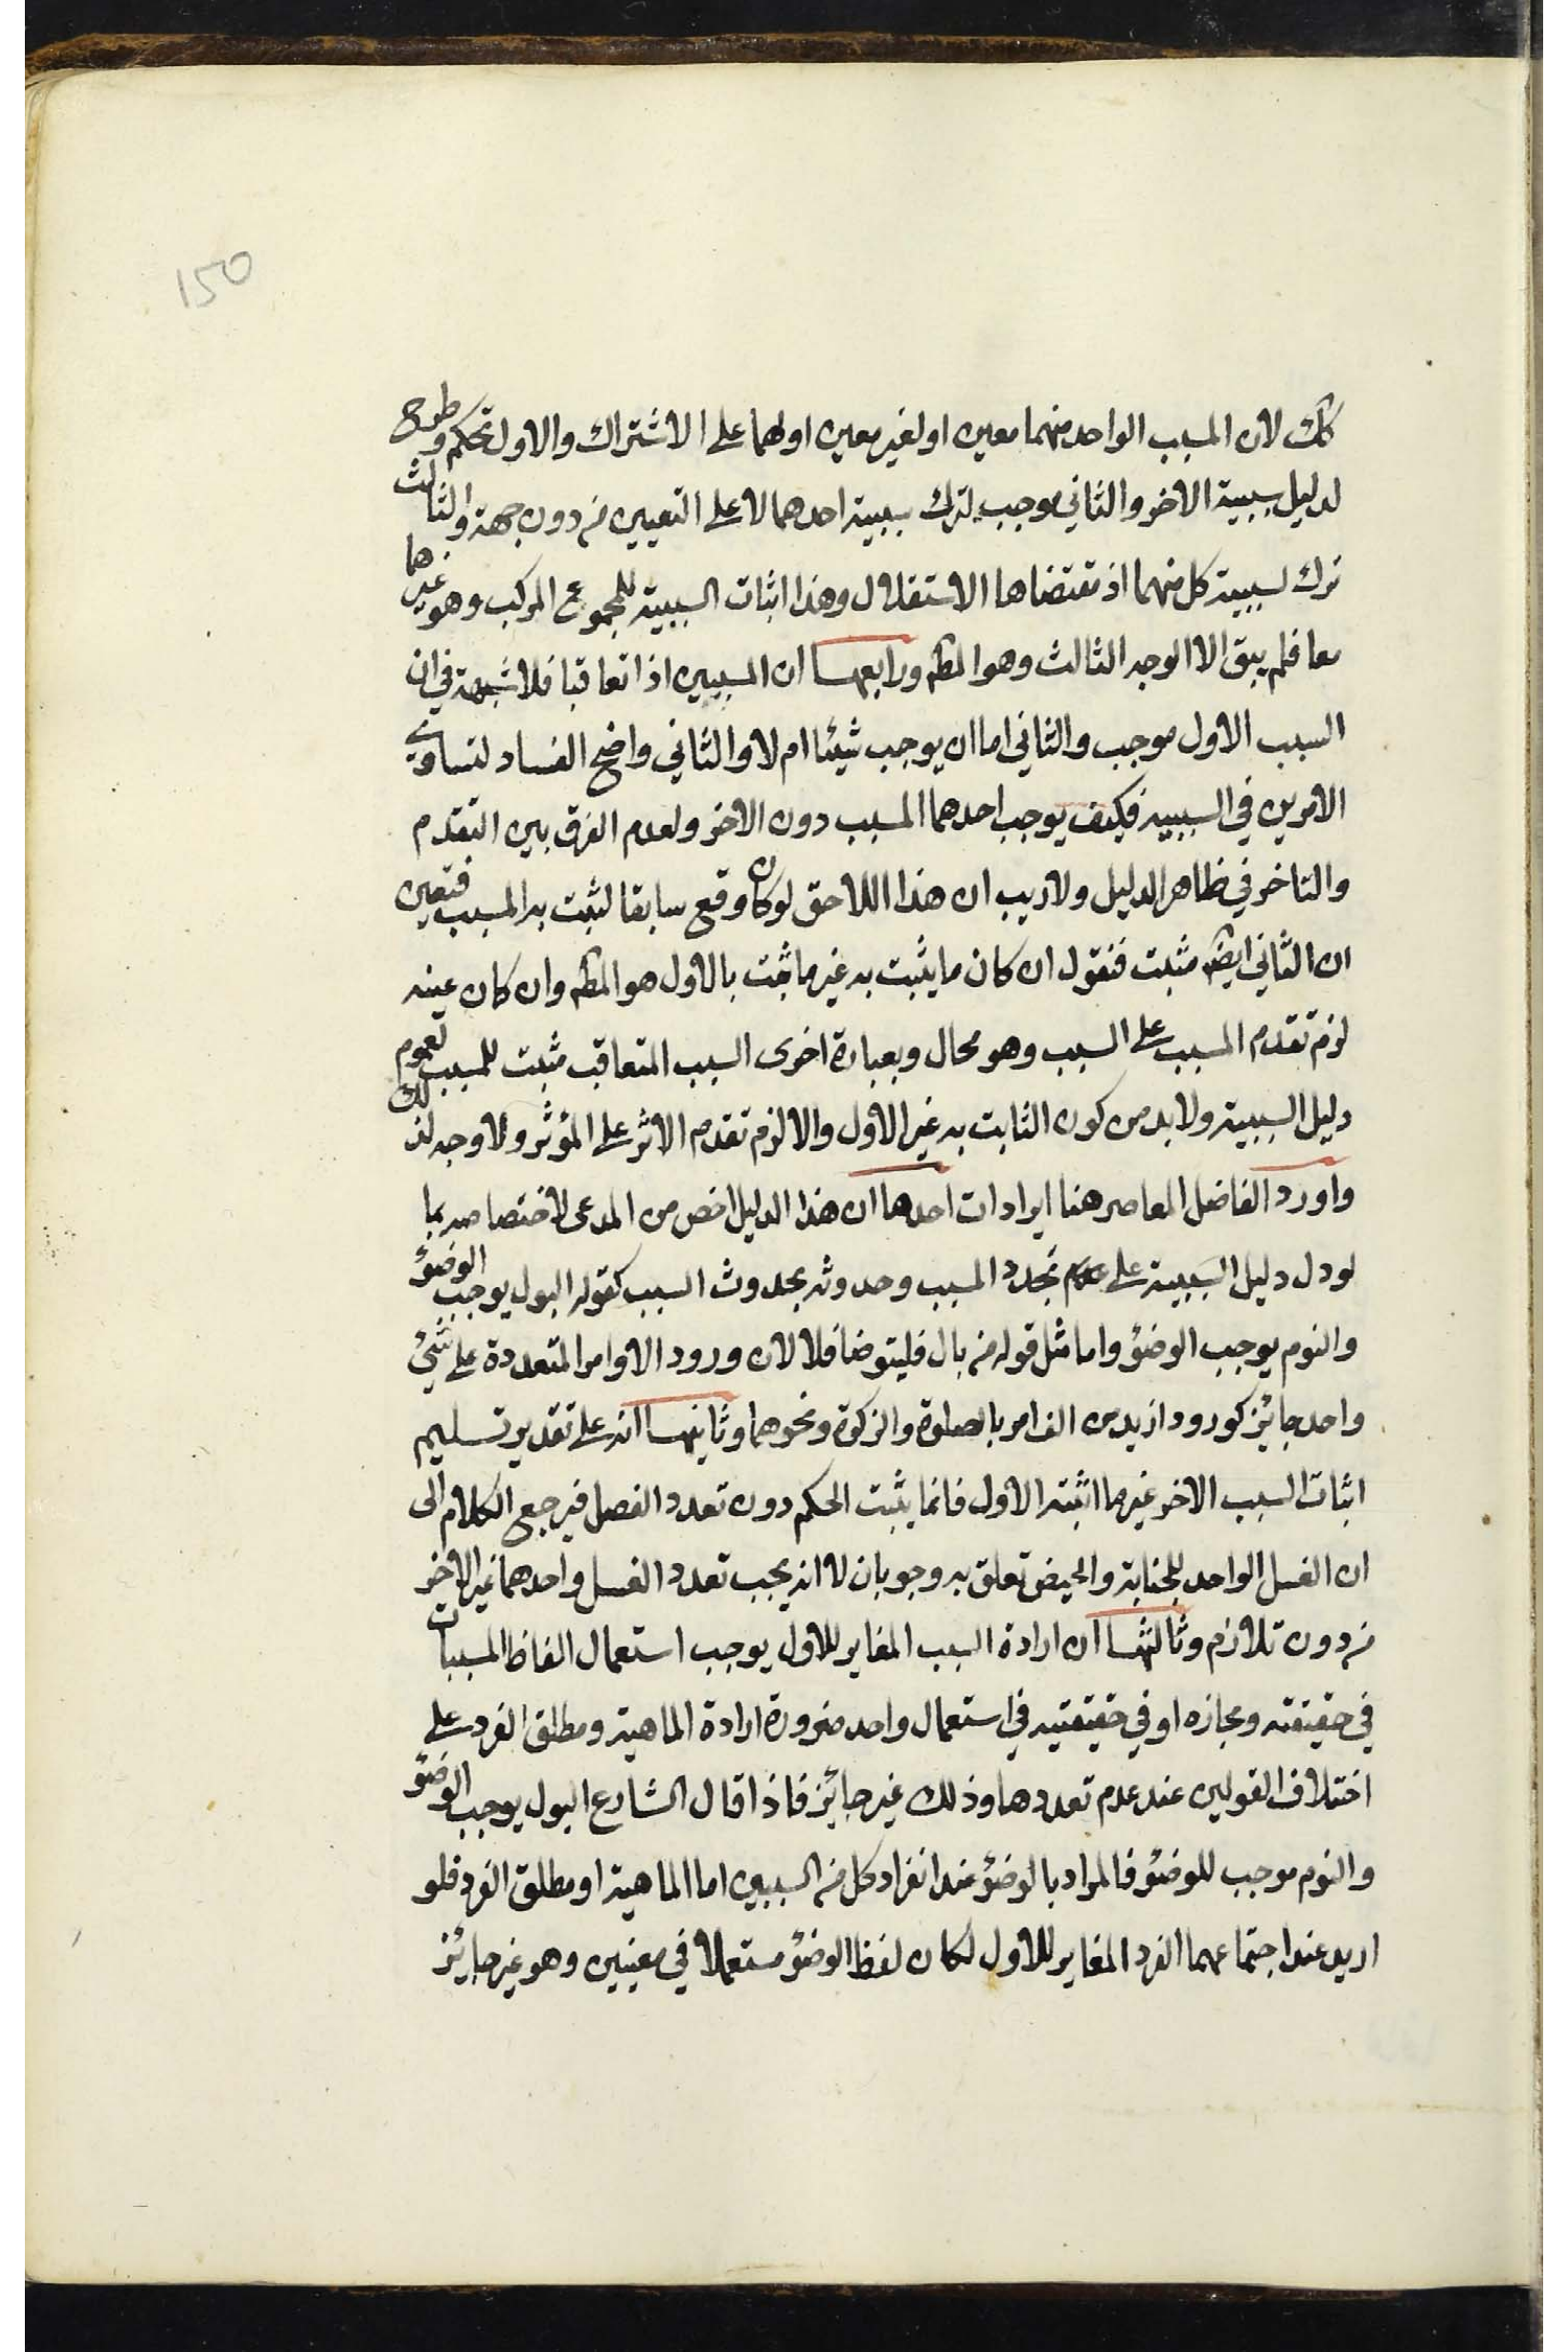 150
كك لان المسبب الواحد منهما معين او لغير معين او لهما على الاشتراك والاول تحكم وطرح
لدليل سببية الاخر والثاني موجب لترك سببية احدهما لا على التعيين من دون جهة والثالث
ترك لسببية كل منهما اذ مقتضاها الاستقلال وهذا اثبات السببية للمجموع المركب وهو غيرهما
معا فلم يبق الا الوجه الثالث وهو المطه ورابعها ان السببين اذا تعاقبا فلا شبهة في ان
السبب الاول موجب والثاني اما ان يوجب شيئا ام لا والثاني واضح الفساد لتساوي
الامرين في السببية فكيف يوجب احدهما المسبب دون الاخر ولعدم الفرق بين التقدم
والتاخر في ظاهر الدليل ولا ريب ان هذا اللاحق لو كان وقع سابقا لثبت به المسبب فتعين
ان الثاني ايضه مثبت فنقول ان كان ما يثبت به غير ما ثبت بالاول هو المطه وان كان عينه
لزم تقدم المسبب على السبب وهو محال وبعبارة اخرى السبب المتعاقب مثبت للمسبب لعموم
دليل السببية ولا بد من كون الثابت به غير الاول والا لزم تقدم الاثر على المؤثر ولا وجه لذلك
واورد الفاضل المعاصر هنا ايرادات احدها ان هذا الدليل اخص من المدعى لاختصاصه بما
لو دل دليل السببية على تجدد المسبب وحدوثه بحدوث السبب كقوله البول يوجب الوضؤ
والنوم يوجب الوضؤ واما مثل قوله من بال فليتوضا فلا لان ورود الاوامر المتعددة على شئ
واحد جائز كورود ازيد من الف امر بالصلوة والزكوة ونحوهما وثانيها انه على تقدير تسليم
اثبات السبب الاخر غير ما اثبته الاول فانما يثبت الحكم دون تعدد الفصل فيرجع الكلام الى
ان الغسل الواحد للجنابة والحيض تعلق به وجوبان لا انه يجب تعدد الغسل واحدهما غير الاخر
من دون تلازم وثالثها ان ارادة السبب المغاير للاول يوجب استعمال الفاظ المسببات
في حقيقته ومجازه او في حقيقتيه في استعمال واحد ضرورة ارادة الماهية ومطلق الفرد على
اختلاف القولين عند عدم تعددها وذلك غير جائز فاذا قال الشارع البول يوجب الوضؤ
والنوم موجب للوضؤ فالمراد بالوضؤ عند انفراد كل من السببين اما الماهية او مطلق الفرد فلو
اريد عند اجتماعهما الفرد المغاير للاول لكان لفظ الوضؤ مستعملا في معنيين وهو غير جائز